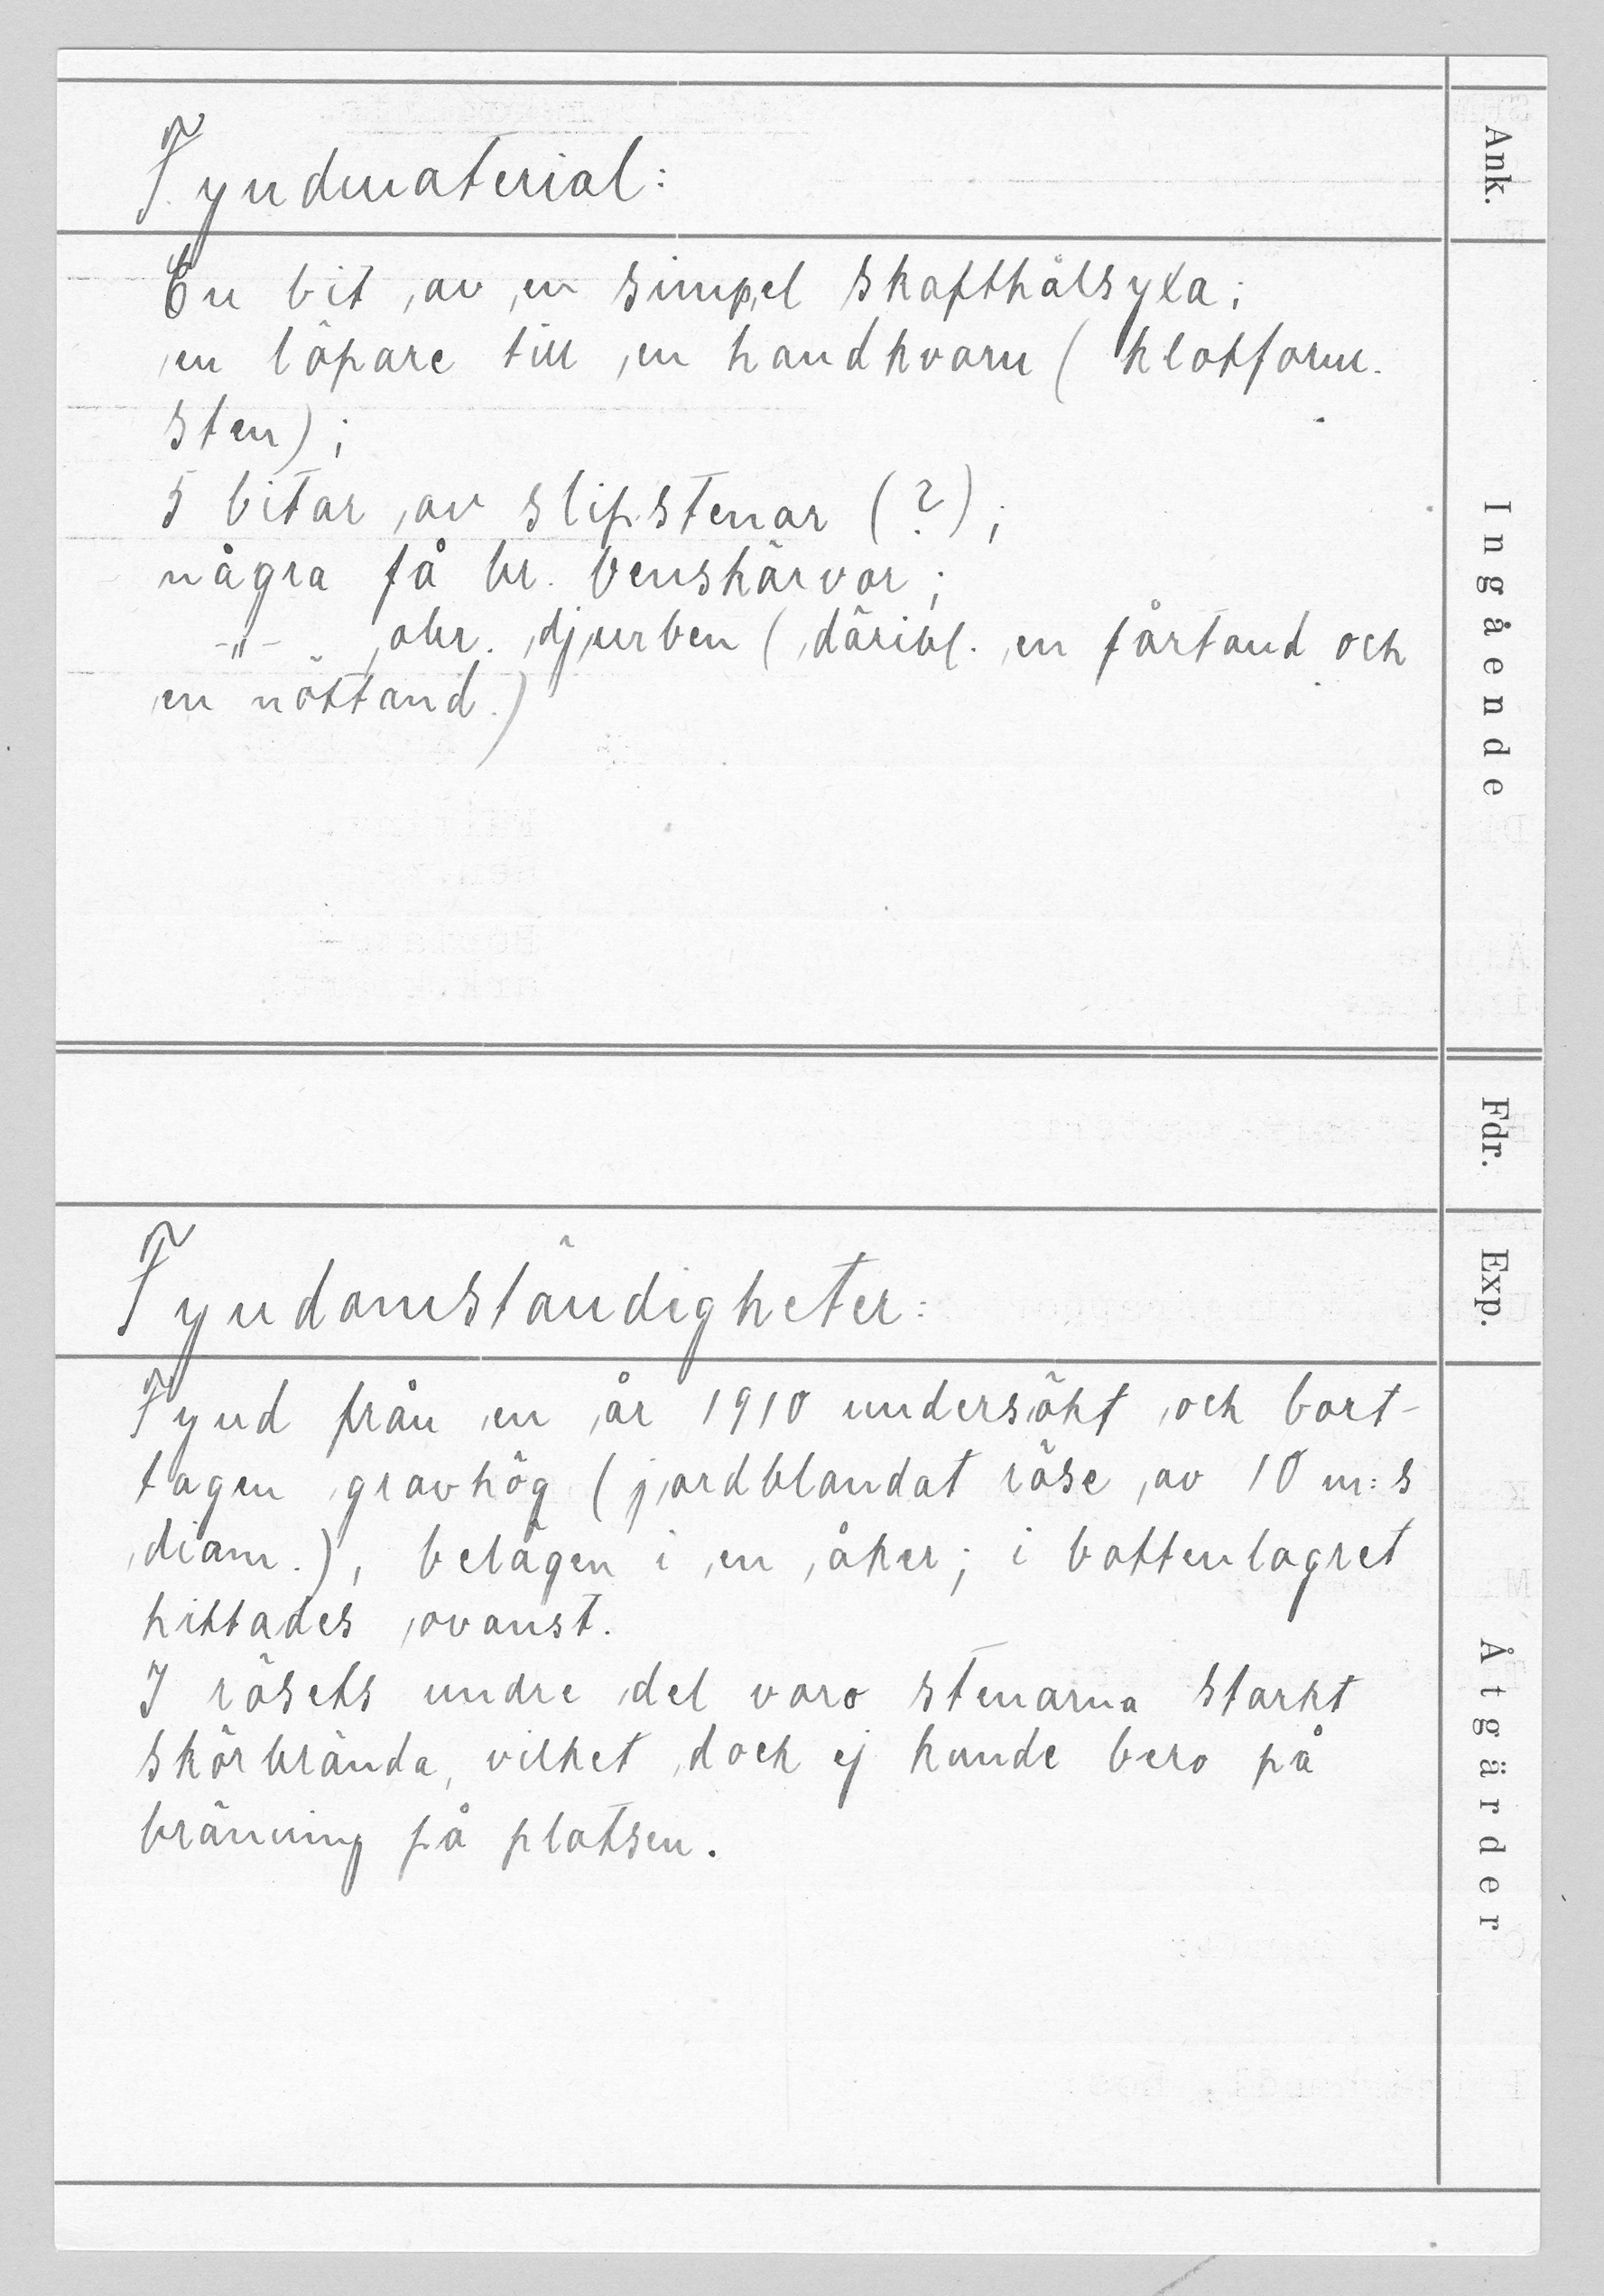 Fyndmaterial:
En bit av en simpel skafthålsyxa;
en löpare till en handkvarn (klotform.
sten);
5 bitar av slipstenar (?);
några få br. benskärvor;
-"- obr. djurben (däribl. en fårtand och
en nöttand.)
Fyndomständigheter:
Fynd från en år 1910 undersökt och bort-
tagen gravhög (jordblandat röse av 10 m:s
diam.), belägen i en åker; i bottenlagret
hittades ovanst.
I rösets undre del voro stenarna starkt
skörbrända, vilket dock ej kunde bero på
bränning på platsen.
Ank.
Ingående
Fdr.
Exp.
Åtgärder